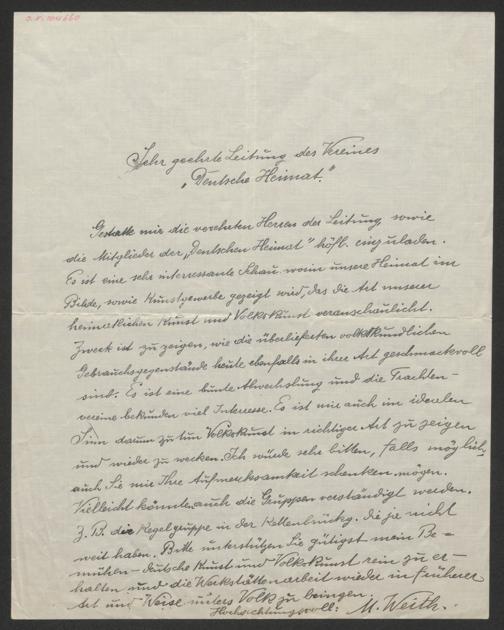 J.N. 104660
Sehr geehrte Leitung des Vereines
"Deutsche Heimat."
Gestatte mir die verehrten Herren der Leitung sowie
die Mitglieder der "Deutschen Heimat" höfl. einzuladen.
Es ist eine sehr interressante Schau worin unsere Heimat im
Bilde, sowie Kunstgewerbe gezeigt wird, das die Art unserer
heimatlichen Kunst und Volkskunst veranschaulicht.
Zweck ist zu zeigen, wie die überlieferten volkskundlichen
Gebrauchsgegenstände heute ebenfalls in ihrer Art geschmackvoll
sind. Es ist eine bunte Abwechslung und die Trachten-
vereine bekunden viel Interesse. Es ist mir auch im idealen
Sinn darum zu tun Volkskunst in richtiger Art zu zeigen
und wieder zu wecken. Ich würde sehr bitten, falls möglich,
auch Sie mir Ihre Aufmerksamkeit schenken mögen.
Vielleicht könnte auch die Gruppen verständigt werden.
Z. B. die Kegelgruppe in der Kettenbrückg. die ja nicht
weit haben. Bitte unterstützen Sie gütigst mein Be-
mühen - deutsche Kunst und Volkskunst rein zu er-
halten und die Werkstättenarbeit wieder in früherer
Art und Weise unters Volk zu bringen.
Hochachtungsvoll: M. Weith.